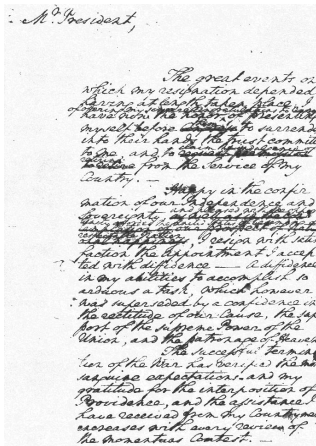 Mr. President,
The great events on
which my resignation depended
having at length taken place, I
have now the honor of presenting
myself before to surrender
into their hands the trust committed
to me, and to
from the Service of my
Country. —
Happy in the confir
mation of our Independence and
Sovereignty,
I resign with satis
faction the appointment I accep
ted with diffidence — a diffidence
in my abilities to accomplish so
arduous a task, which however
was superseded by a confidence in
the rectitude of our Cause, the sup
port of the supreme Power of the
Union, and the patronage of Heaven
The successful termin
tion of the War has verified the mo
sanguine expectations and my
gratitude for the interposition of
Providence, and the assistance I
have received from my Countrymen
increases with every review of
the momentous Contest. —